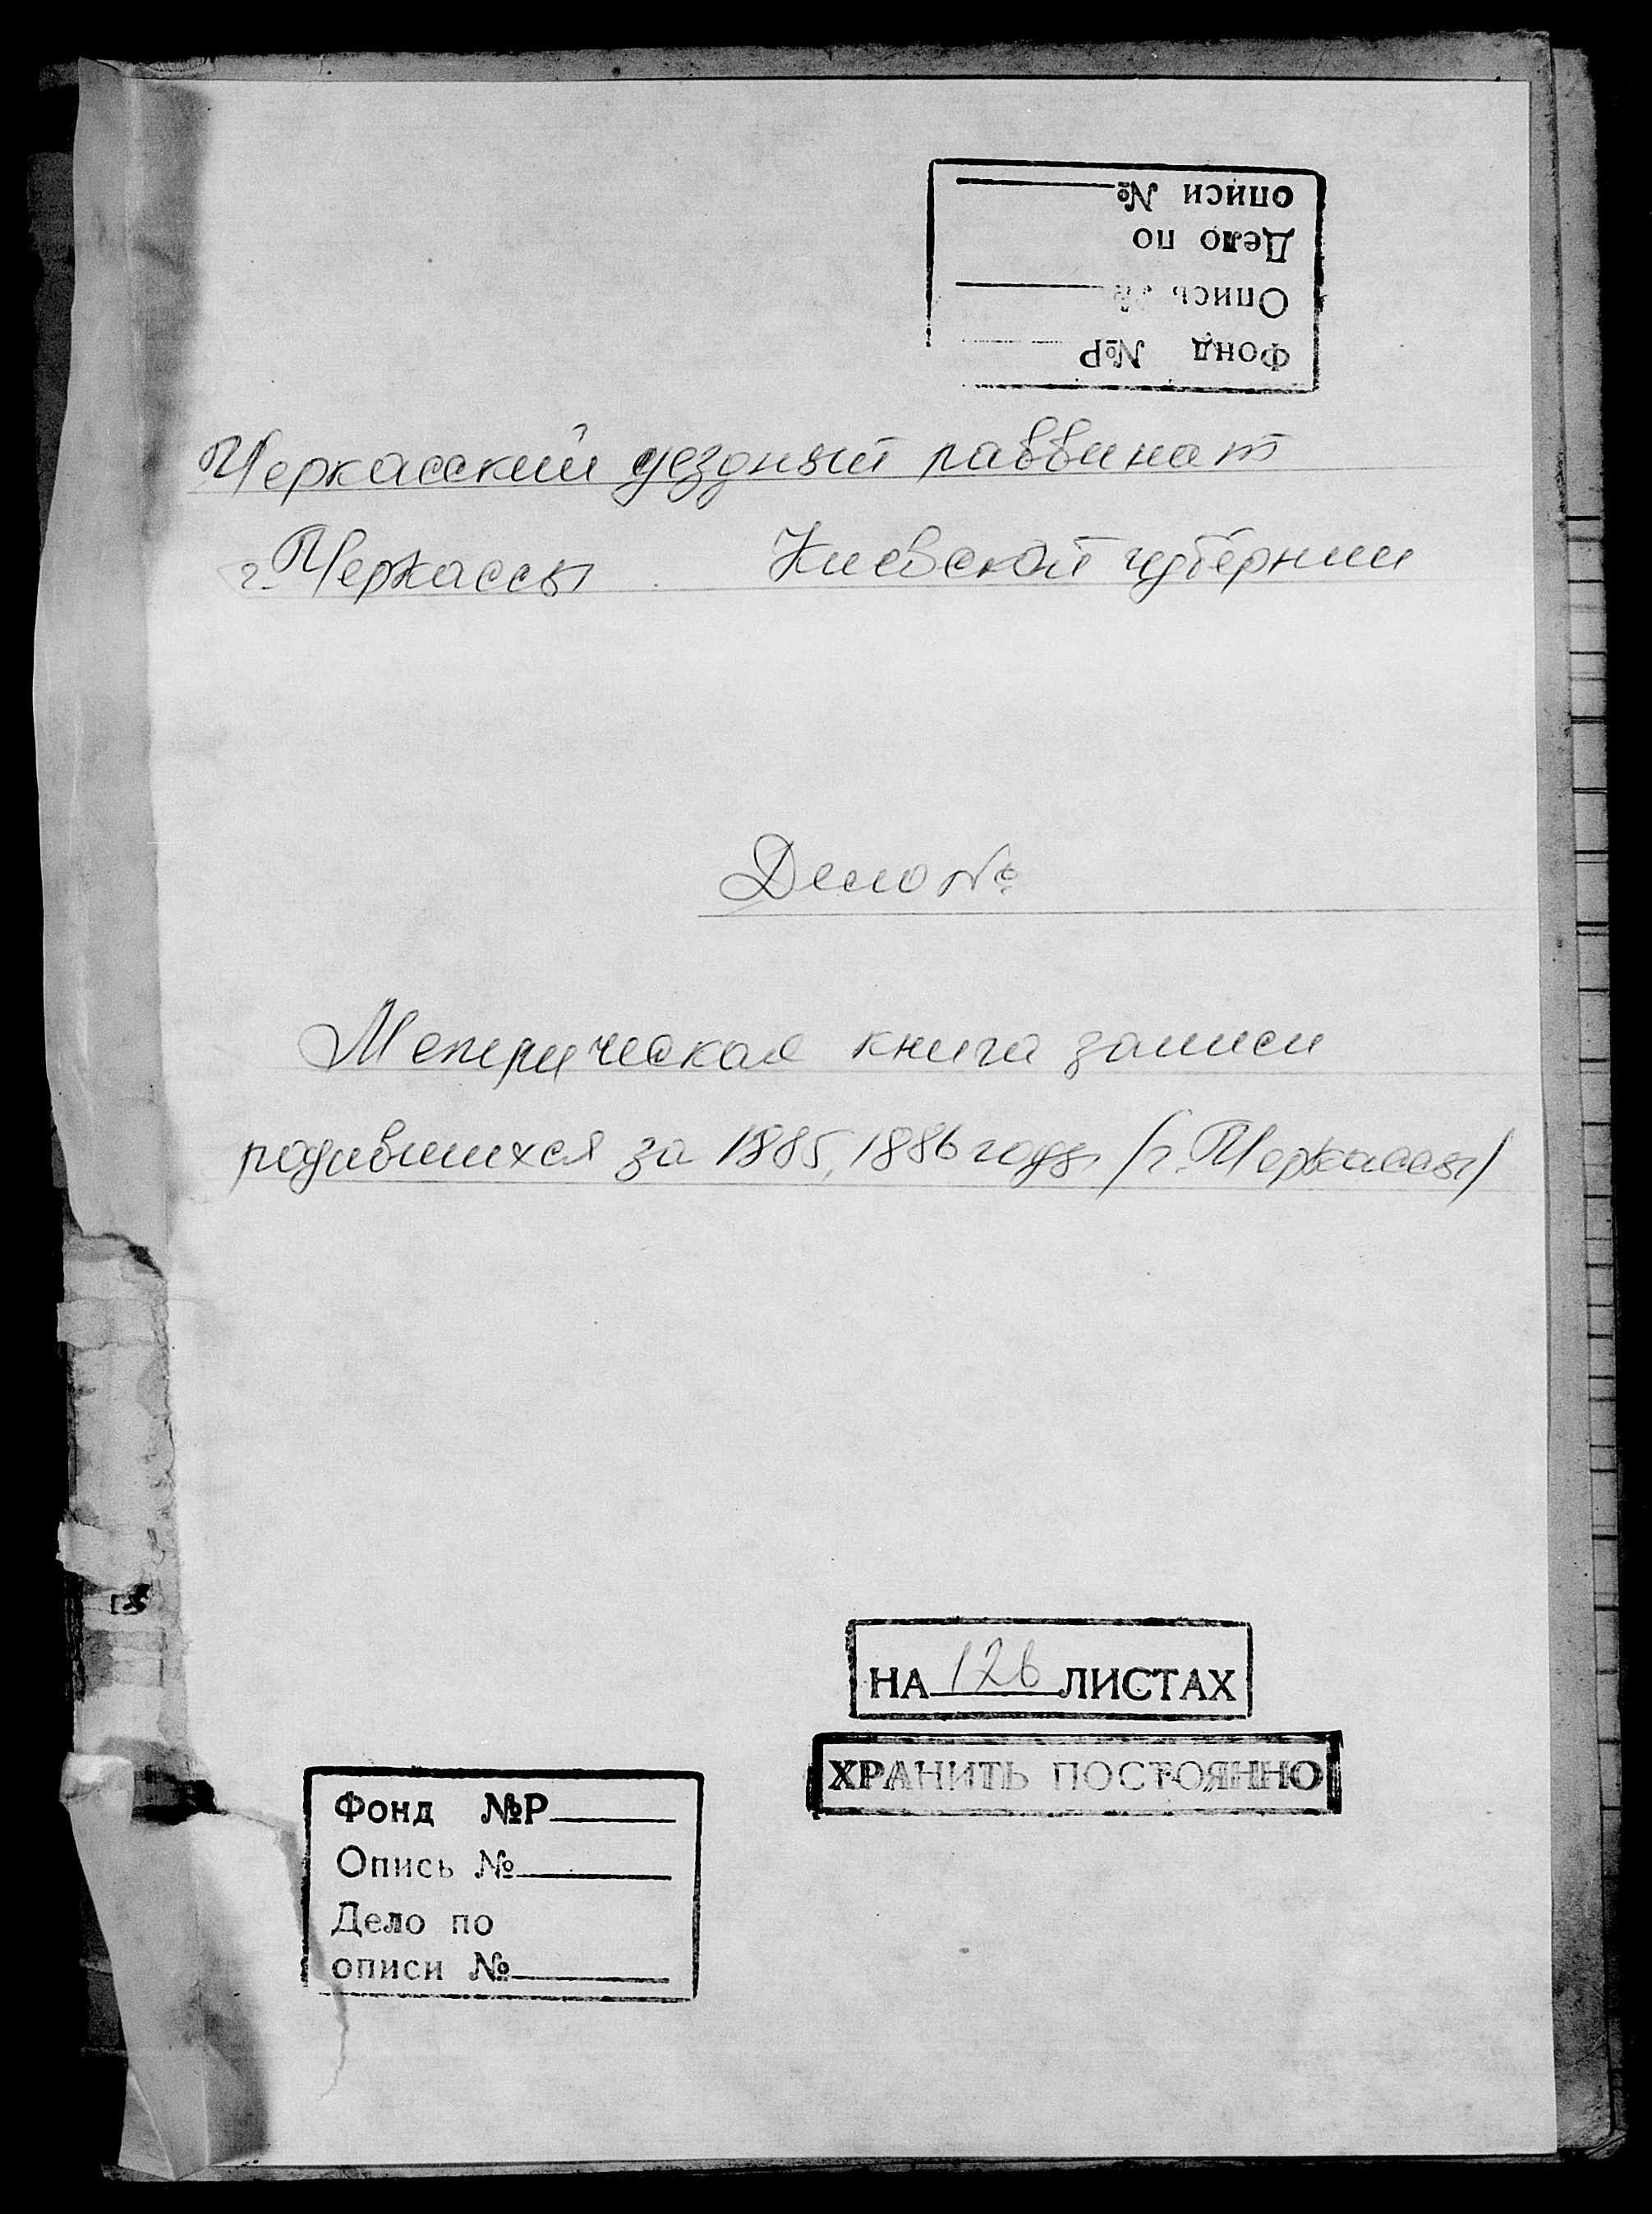 Фонд №Р
Опись №
Дело по
описи №
Черкасский уездный раввинат
г. Черкассы Киевской губернии
Дело №
Метрическая книга записи
родившихся за 1885, 1886 годы /г. Черкассы/
НА 126 ЛИСТАХ
ХРАНИТЬ ПОСТОЯННО
Фонд №Р
Опись №
Дело по
описи №